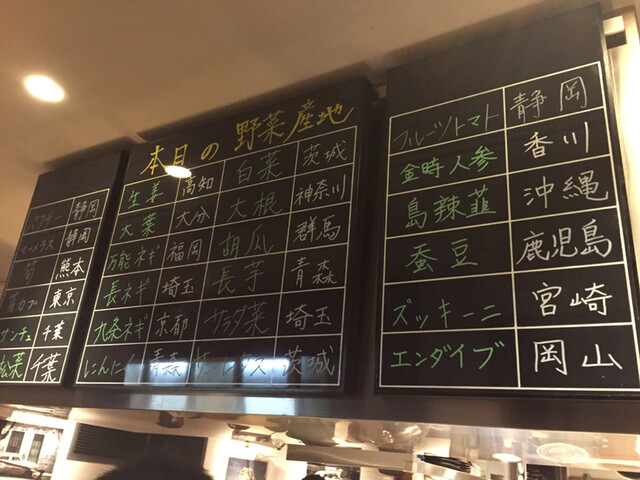 静岡
静岡
筍 熊本
東京
サンチュ 千葉
松菜 千葉
本日の野菜産地
生姜 高知 白菜 茨城
大葉 大分 大根 神奈川
万能ネギ 福岡 胡瓜 群馬
長ネギ 埼玉 長芋 青森
九条ネギ 京都 サラダ菜 埼玉
にんにく 青森 茨城
フルーツトマト 静岡
金時人参 香川
島辣韮 沖縄
蚕豆 鹿児島
ズッキーニ 宮崎
エンダイブ 岡山